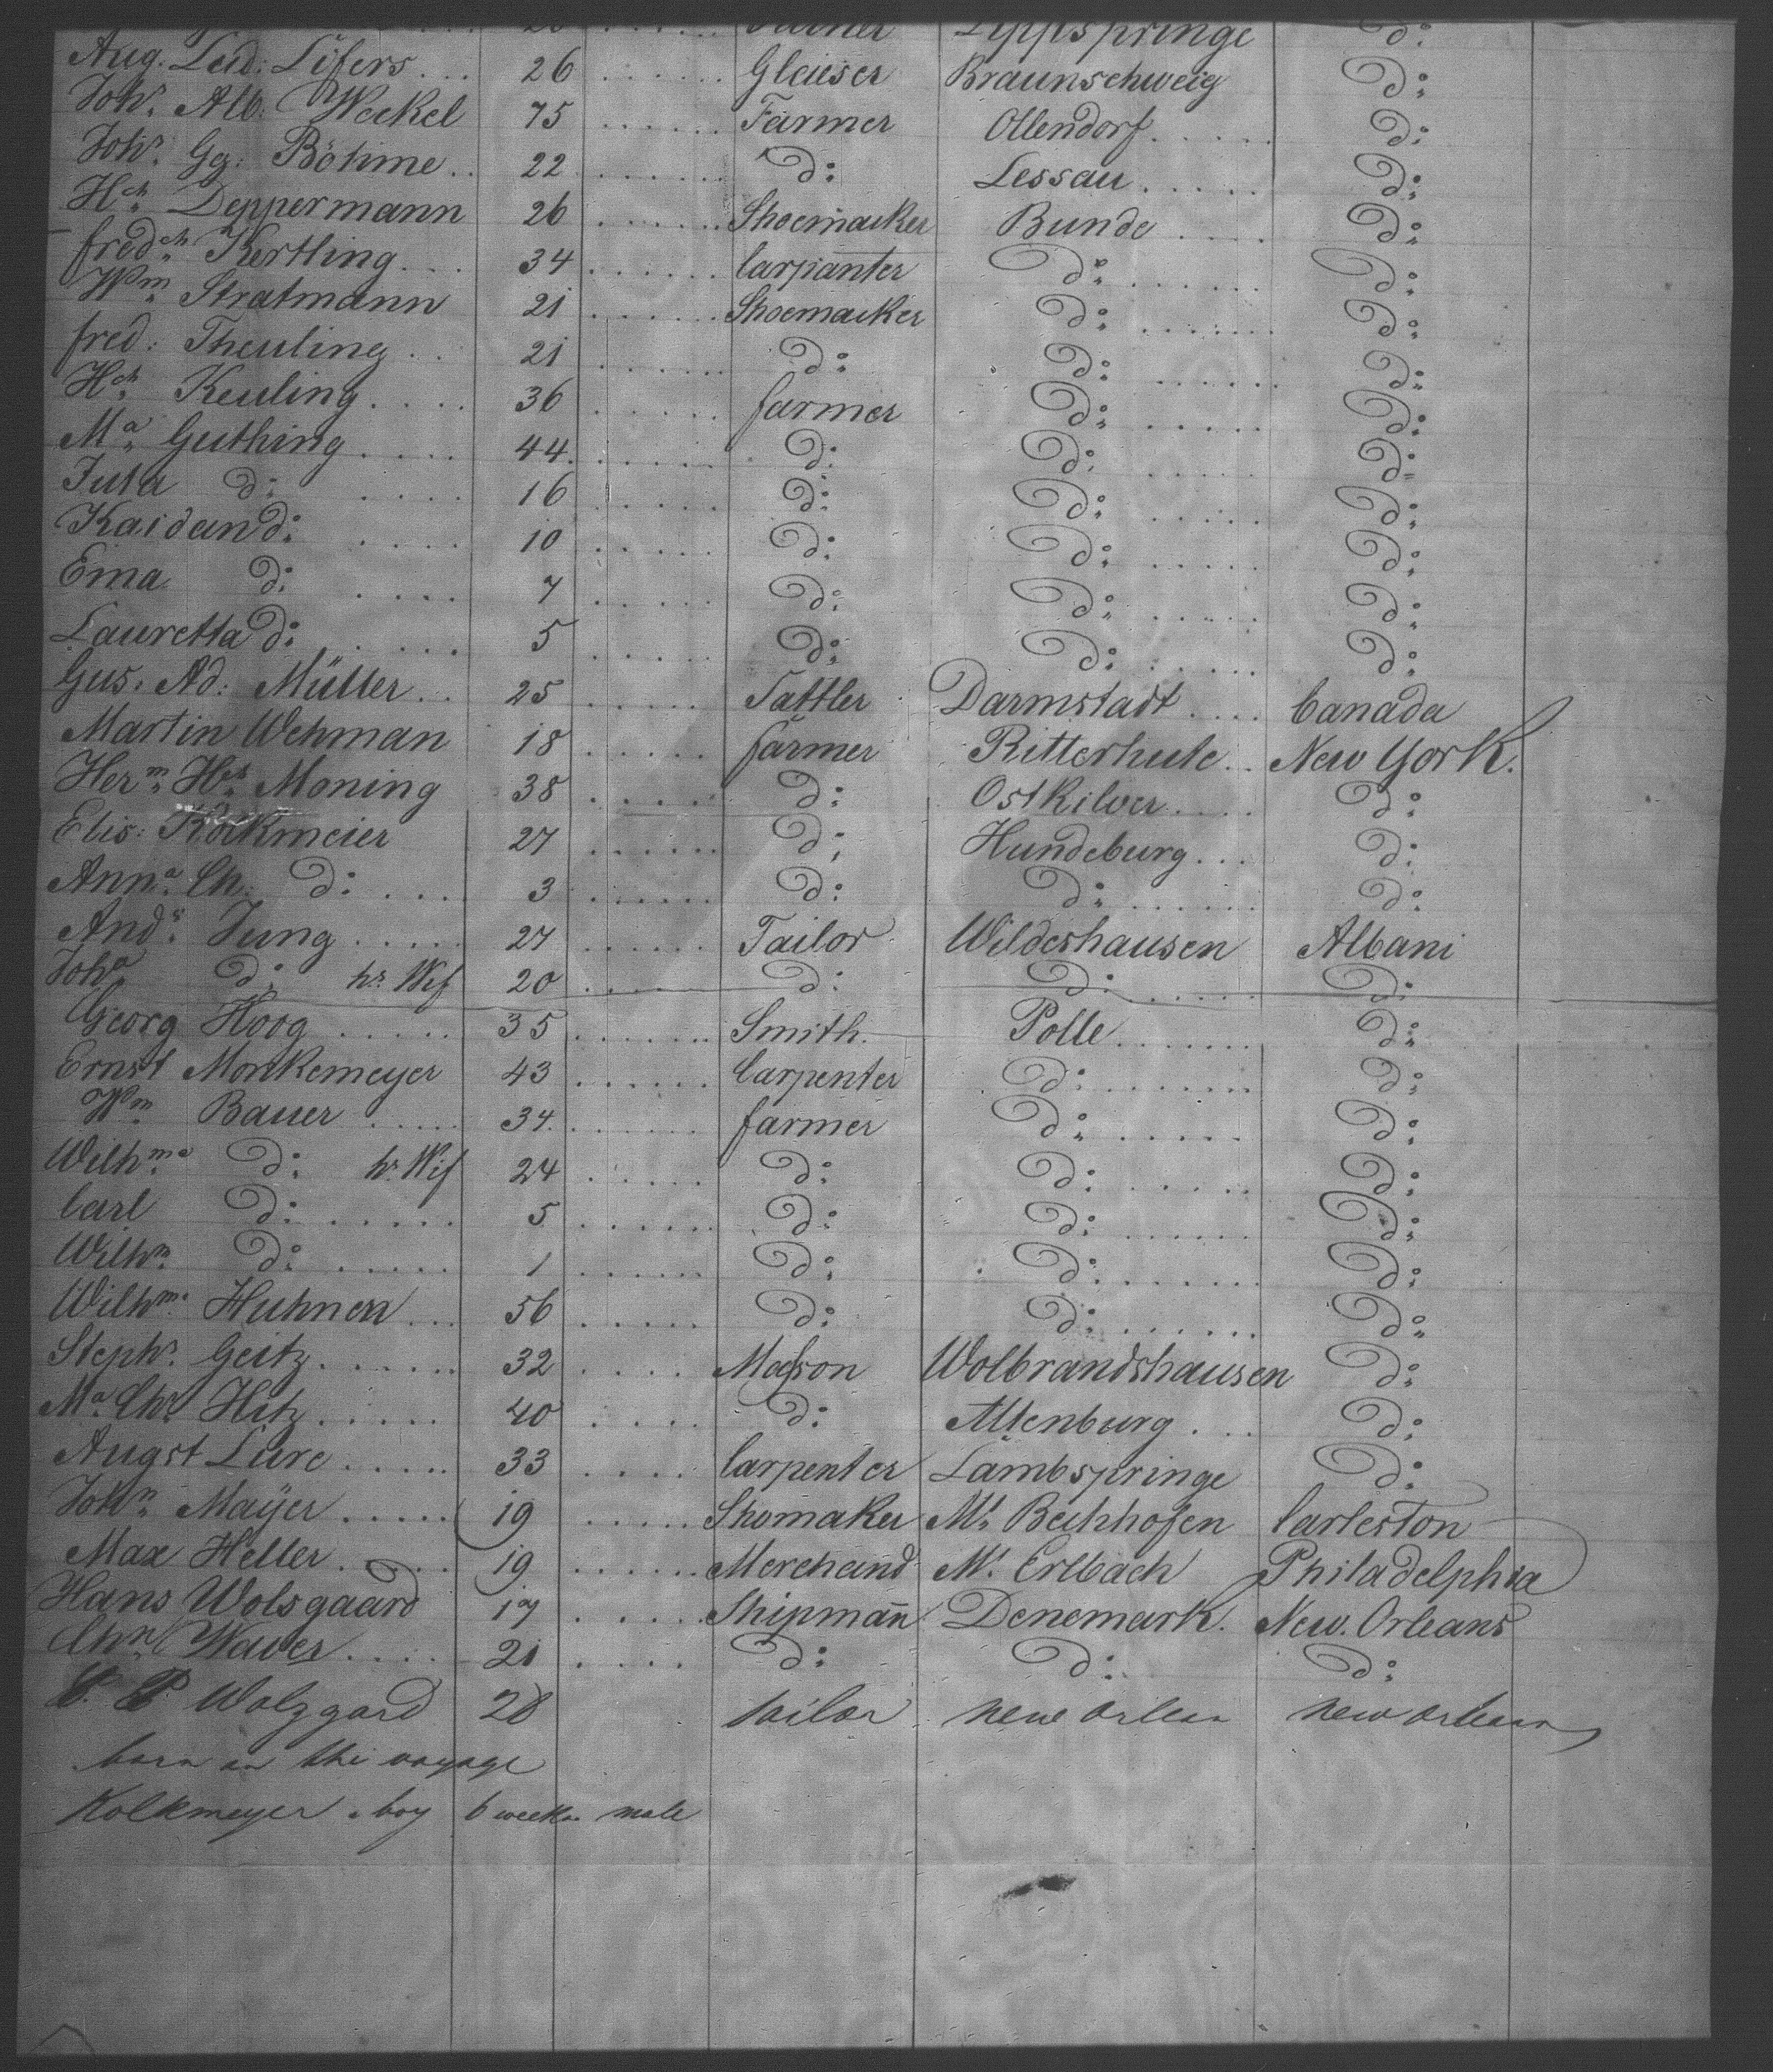 Lippspringe d:
Aug. Lud: Löfers... 26 ...... Glaeser Braunschweig d:
Joh.n Alb: Weckel 75 ...... Farmer Ollendorf..... d:
Joh.n Gg: Böhme.. 22 ...... d: Lessau..... d:
H.ch Deppermann 26 ...... Shoemacker Bunde .... d:
fred.ch Kertling... 34 ...... Carpanter d: ...... d:
W.m Stratmann 21 ...... Shoemacker d: ....... d:
fred: Theuling.. 21 ...... d: d: ...... d:
H.ch Keuling.... 36 ...... farmer d: ..... d:
M.a Guthing.... 44. ...... d: d: ..... d:
Juta d: .... 16 ...... d: d: ..... d:
Kaidan d: .... 10 ...... d: d: ..... d:
Ema d: .... 7 ...... d: d: ..... d:
Lauretta d: .... 5 ..... d: d: ..... d:
Gus: Ad: Müller... 25 ...... Sattler Darmstadt.... Canada
Martin Wehman 18 ..... farmer Ritterhute.. New York.
Her.m H.ch Moning 38 ..... d: Ostkilver.... d:
Elis: Kolkmeier 27 ...... d: Hundeburg... d:
Ann.a Ch: d: .... 3 ...... d: d: ...... d:
And.s Jung..... 27 ...... Tailor Wildeshausen Albani
Joh.a d: h.s Wif 20 ..... d: d: ..... d:
Georg Hoog..... 35 ....... Smith. Polle....... d:
Ernst Monkemeyer 43 ...... Carpenter d: ....... d:
W.m Bauer ..... 34. ...... farmer d: ..... d:
Wilh.me d: h.s Wif 24 ..... d: d: ..... d:
Carl d: ..... 5 ...... d: d: ...... d:
Wilh.m d: ..... 1 ...... d: d: ....... d:
Wilh.me Huhnen... 56 ..... d: d: ...... d:
Steph.n Geitz...... 32 ..... Mason Wolbrandshausen d:
M.a Chr. Hitz..... 40 .... d: Altenburg... d:
Augst Lure..... 33 .... Carpenter Lambspringe d:
Joh.n Mayer..... 19 ..... Shomaker M.t Bechhofen Carleston
Max Heller..... 19 ...... Merchand M.t Erlbach Philadelphia
Hans Wolsgaard 17 ..... Shipmann Denemark. New. Orleans
Chn. Waver.... 21 .... d: d: d:
P. Wolzgard 28 sailor new orlean new orleans
born on the voyage
Kolkmeyer boy 6 weeks male